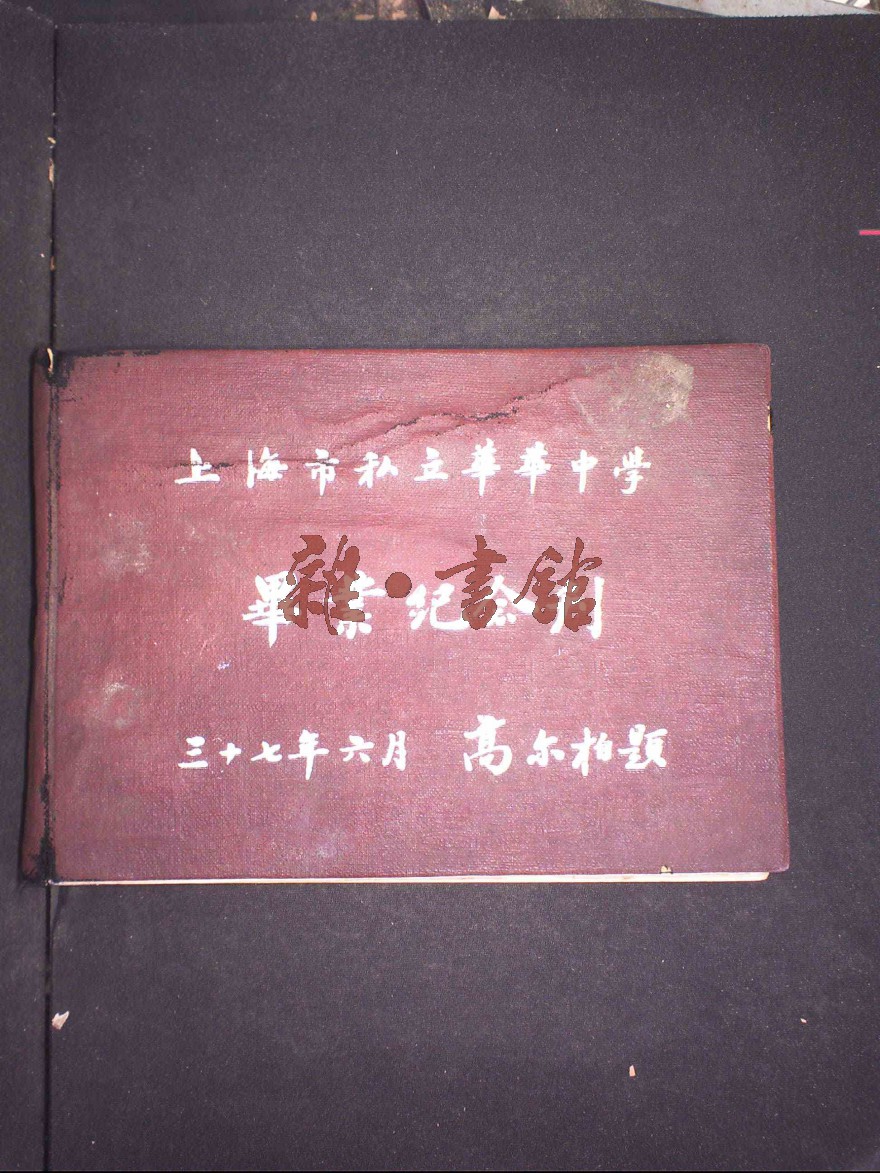 上海市私立華華中學
畢業紀念刊
雜·書館
三十七年六月 高尔柏題